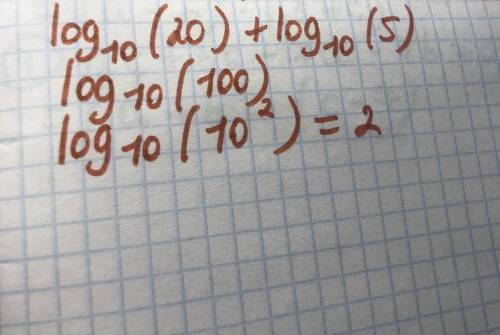 log₁₀(20) + log₁₀(5)
log₁₀(100)
log₁₀(10²) = 2